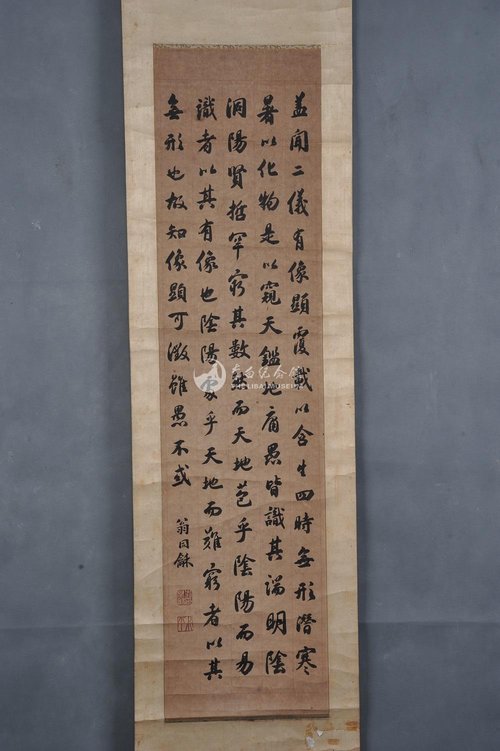 盖聞二儀有像顯覆載以含生四時無形潛寒
暑以化物是以窺天鑑地庸愚皆識其端明陰
洞陽賢哲罕窮其數然而天地苞乎陰陽而易
識者以其有像也陰陽處乎天地而難窮者以其
無形也故知像顯可徵雖愚不惑
翁同龢
李白纪念馆
THE LIBAI MUSEUM